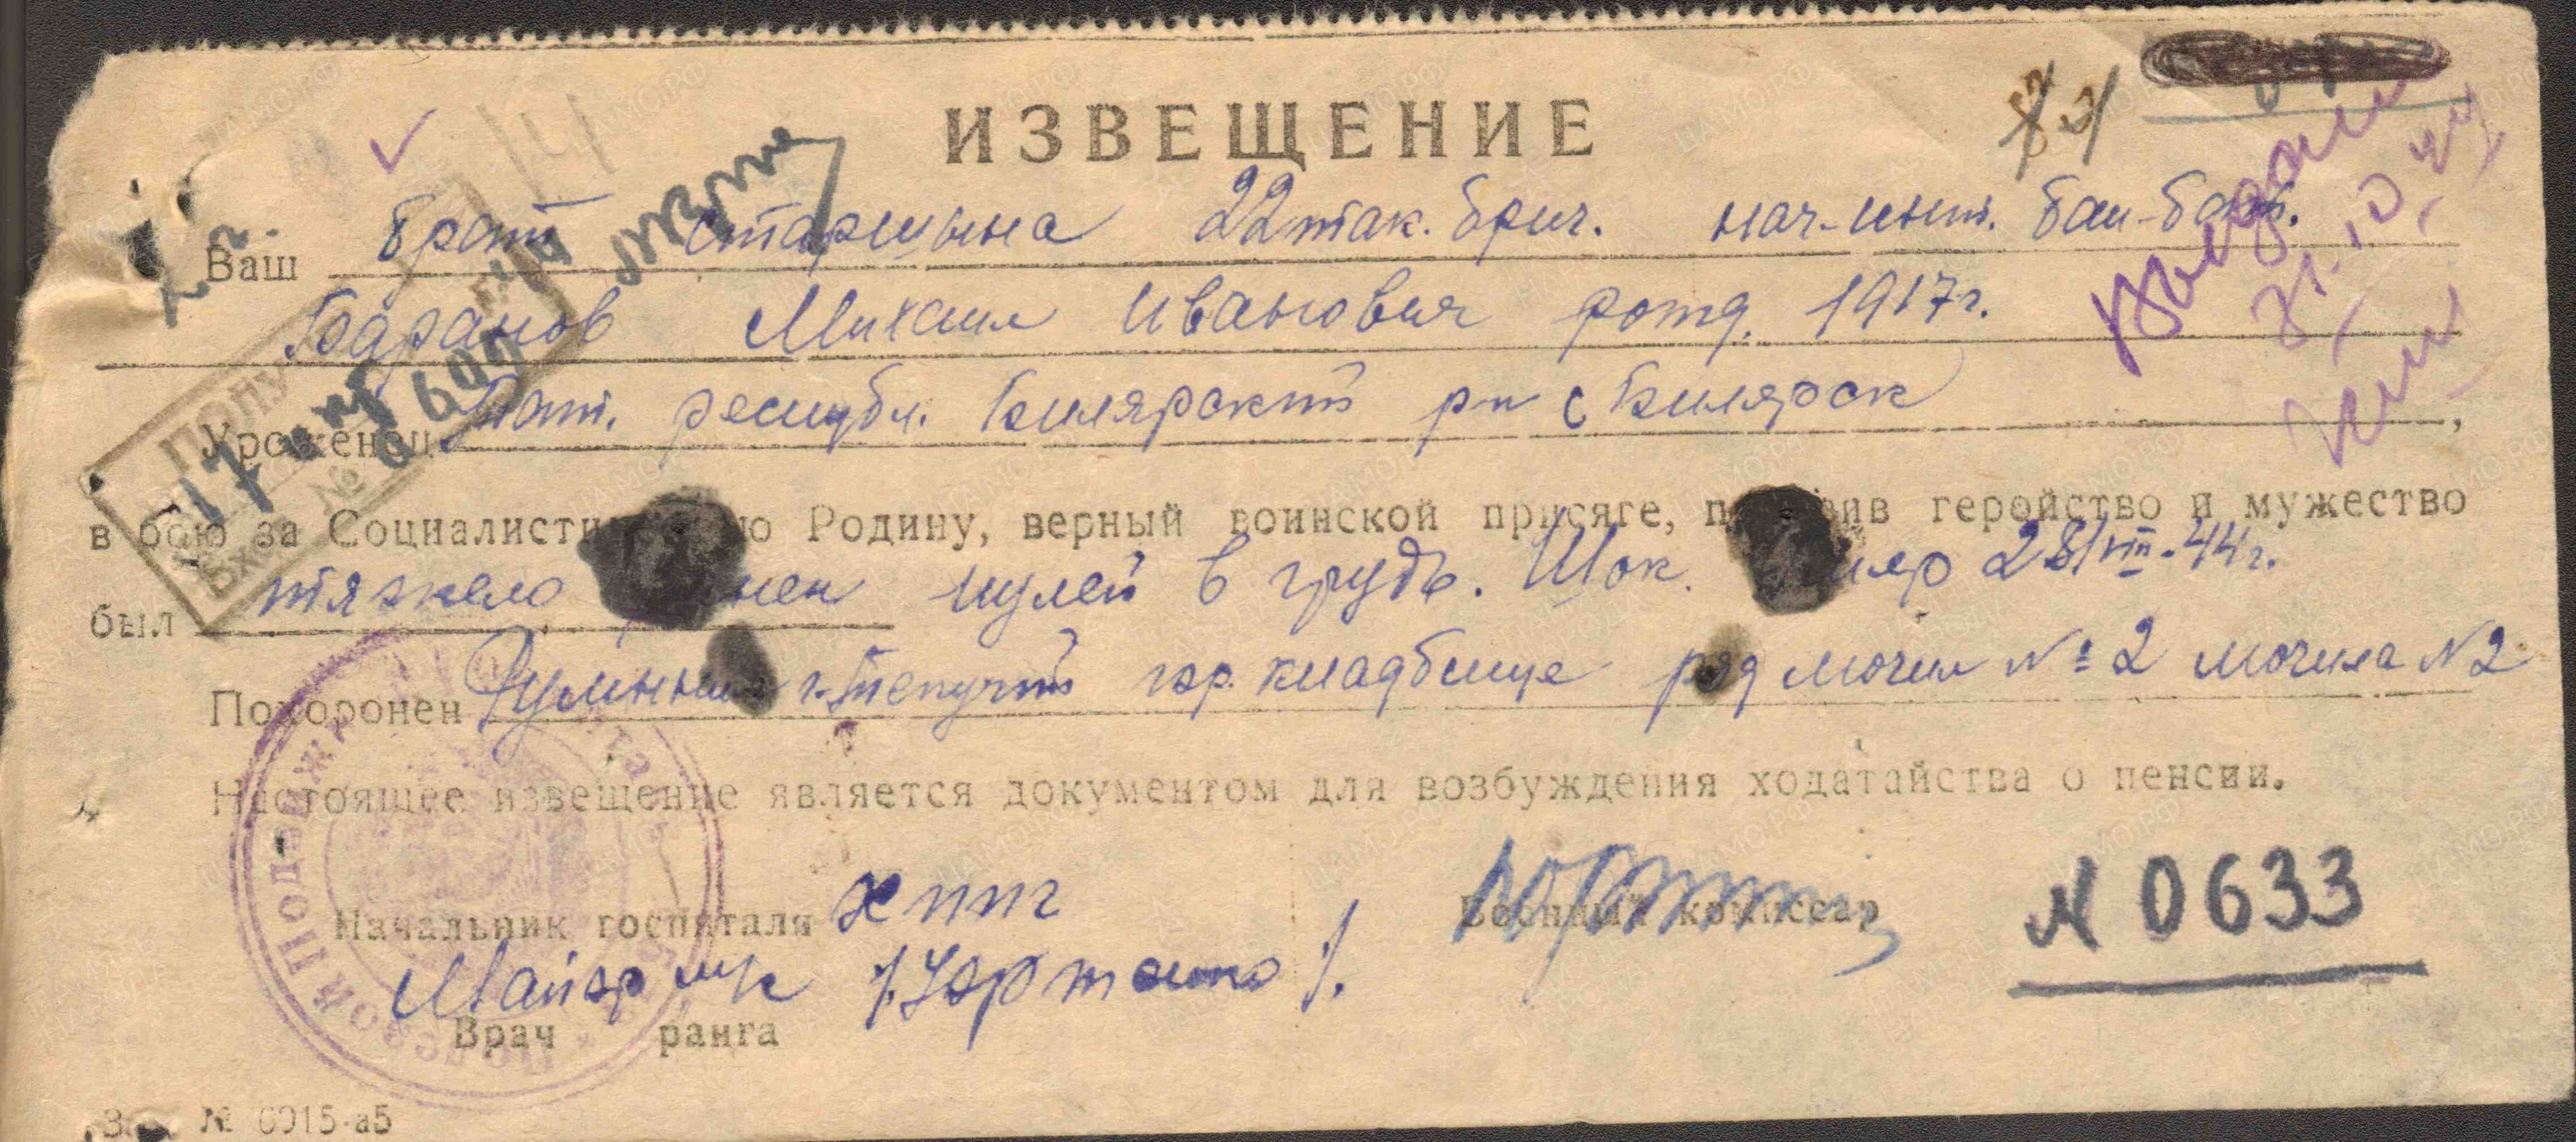 ИЗВЕЩЕНИЕ
Ваш брат старшина 22 так. бриг. нач-инт. бат-бор.
Баранов Михаил Иванович рожд. 1917г.
Уроженец Тат. республ. Билярский р-н с Билярск,
в бою за Социалисти ю Родину, верный воинской присяге, п ив геройство и мужество
был тяжело нен пулей в грудь. Шок. мер 28/VIII-44г.
Похоронен Румыния г. Текучий гор. кладбище ряд могил №2 могила N2
Настоящее извещение является документом для возбуждения ходатайства о пенсии.
Начальник госпиталя хппг Военный комиссар
N 0633
Майор м/с
Врач ранга
Полевой Подвиж
№ 6915-а5
Выдали
31.10.44
17
600
Вх. №